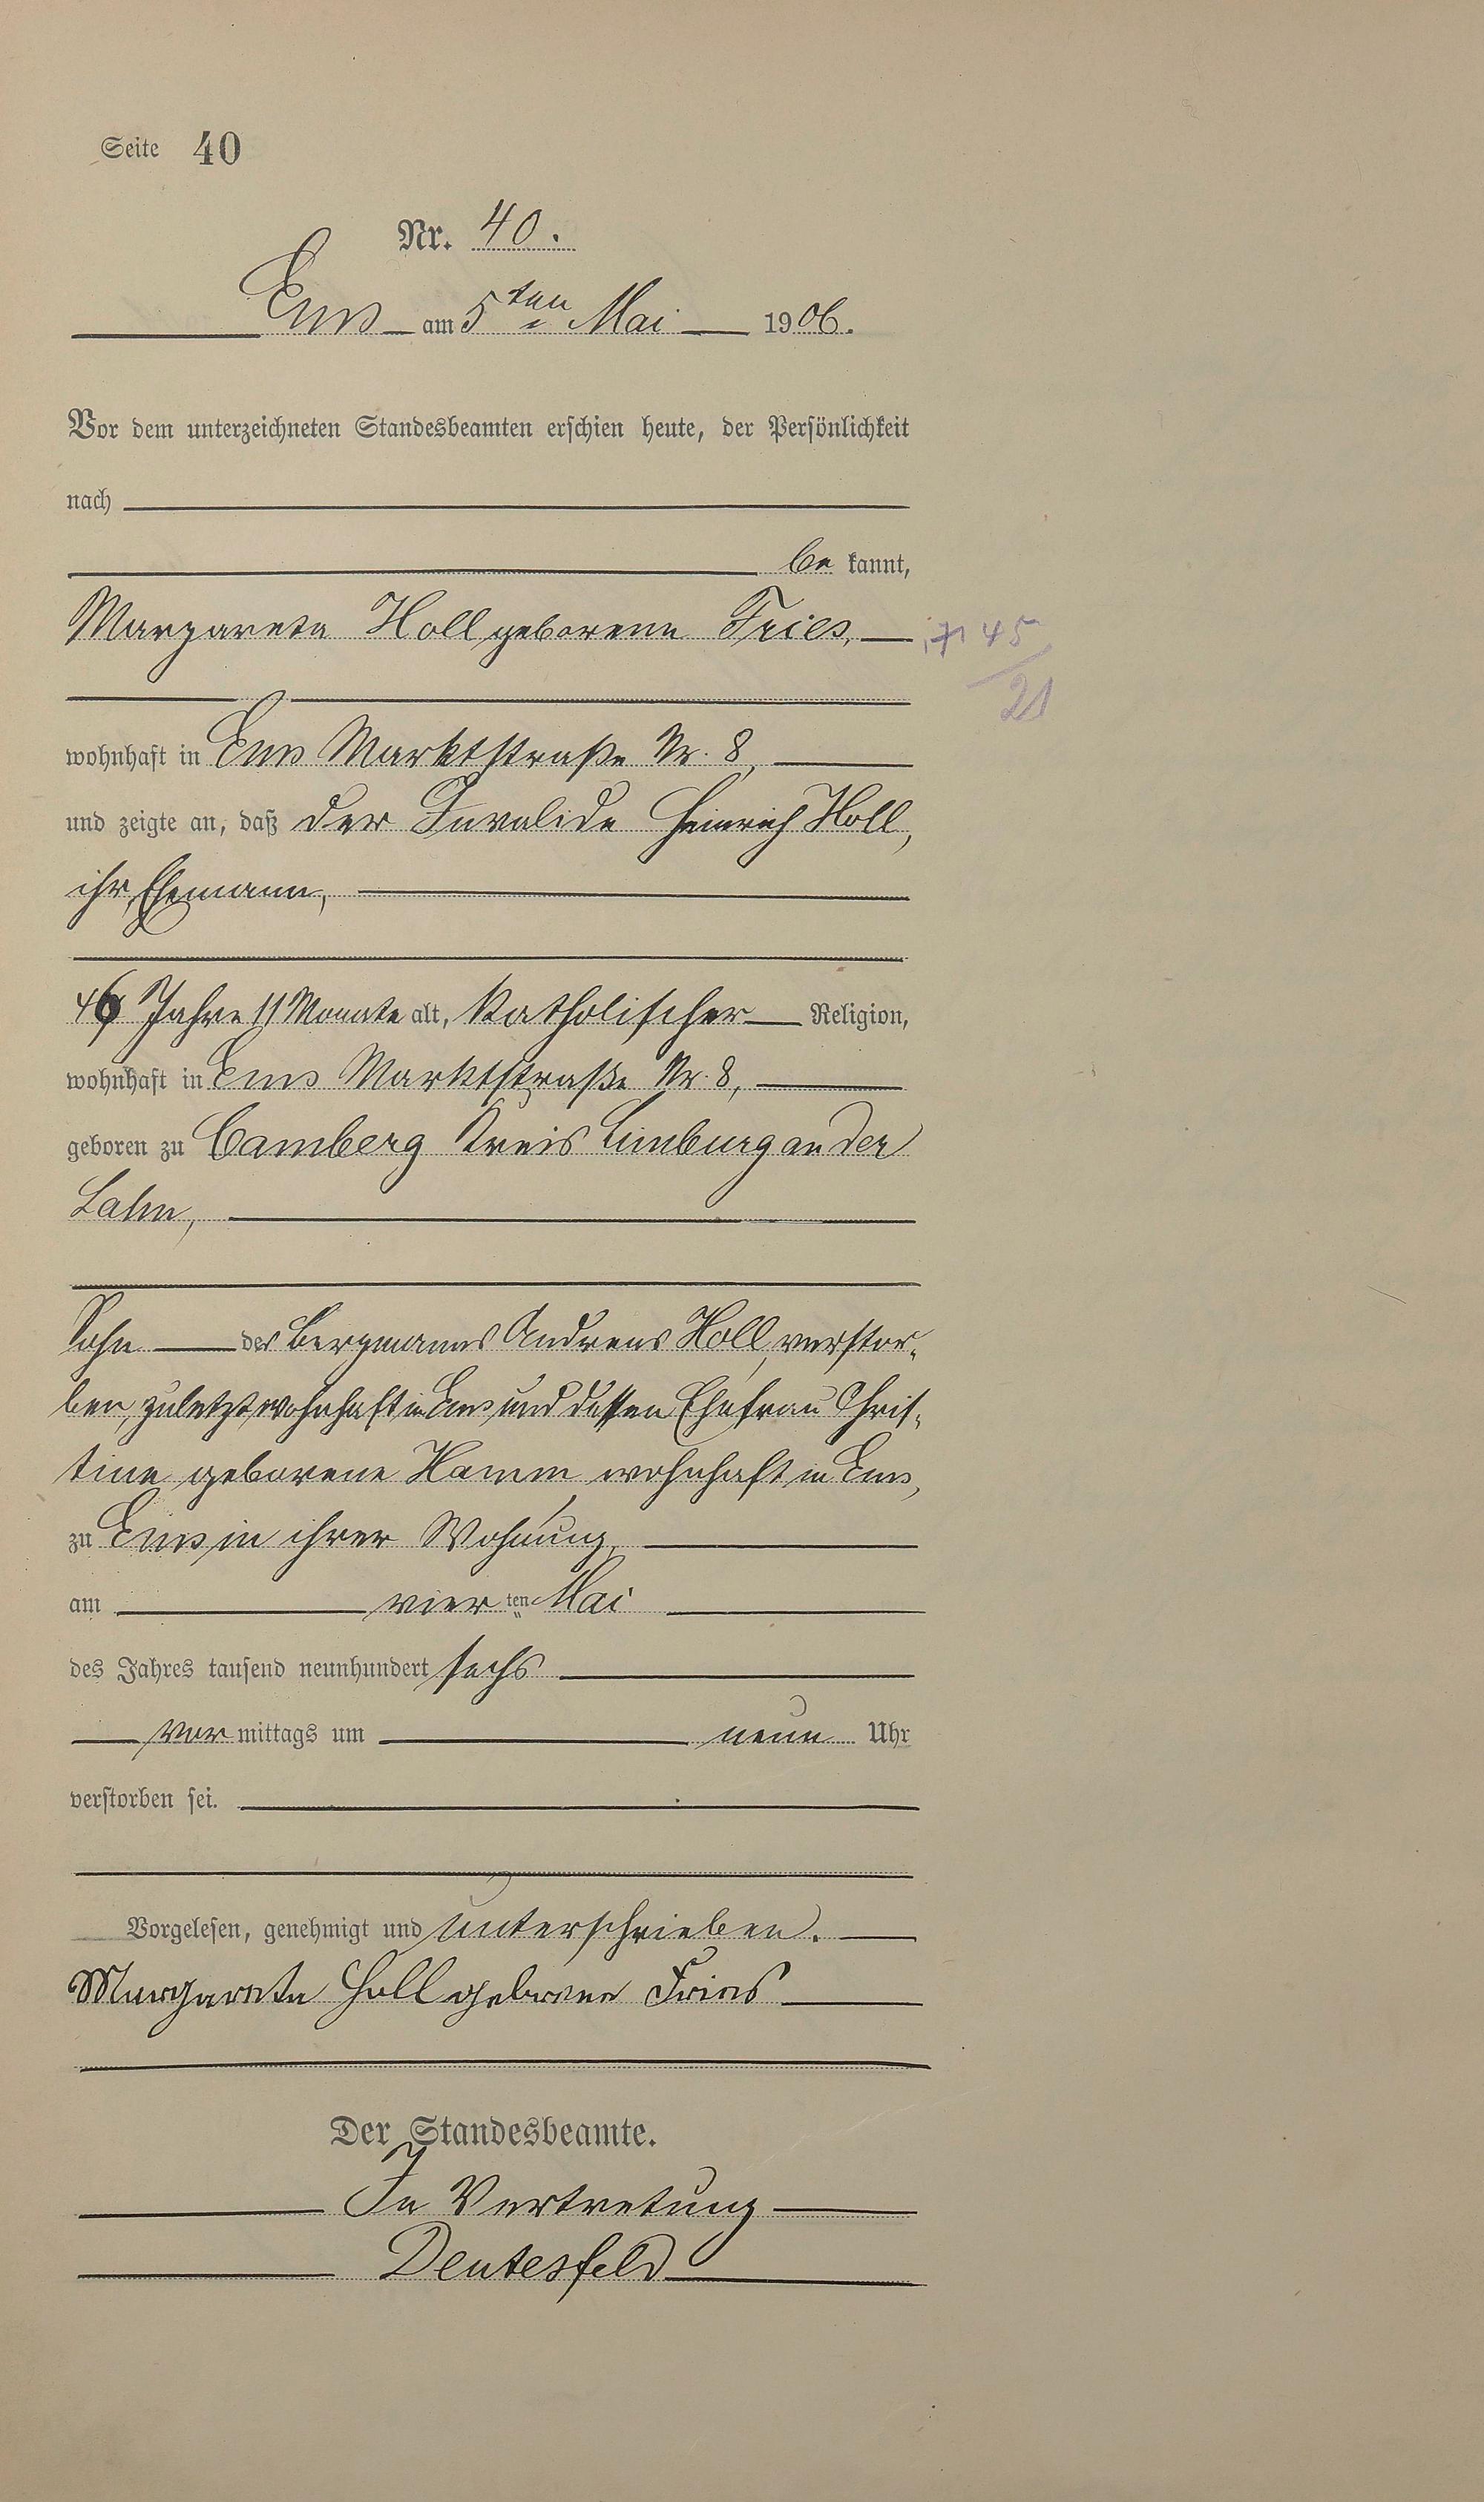 Seite 40
Nr. 40.
Ems am 5ten Mai 1906.
Vor dem unterzeichneten Standesbeamten erschien heute, der Persönlichkeit
nach
be kannt,
Margareta Holl geborene Fries,
45
21
wohnhaft in Ems Marktstraße Nr. 8,
und zeigte an, daß der Invalide Heinrich Holl,
ihr Ehemann,
46 Jahre 11 Monate alt, katholischer Religion,
wohnhaft in Ems Marktstraße Nr. 8,
geboren zu Camberg Kreis Limburg an der
Lahn,
Sohn des Bergmanns Andreas Holl, verstor-
ben, zuletzt wohnhaft in Ems und dessen Ehefrau Chris-
tine geborene Hamm, wohnhaft in Ems,
zu Ems in ihrer Wohnung,
am vier ten Mai
des Jahres tausend neunhundert sechs
vor mittags um neun Uhr
verstorben sei.
Vorgelesen, genehmigt und unterschrieben.
Margareta Holl geborene Fries
Der Standesbeamte.
In Vertretung
Deutesfeld